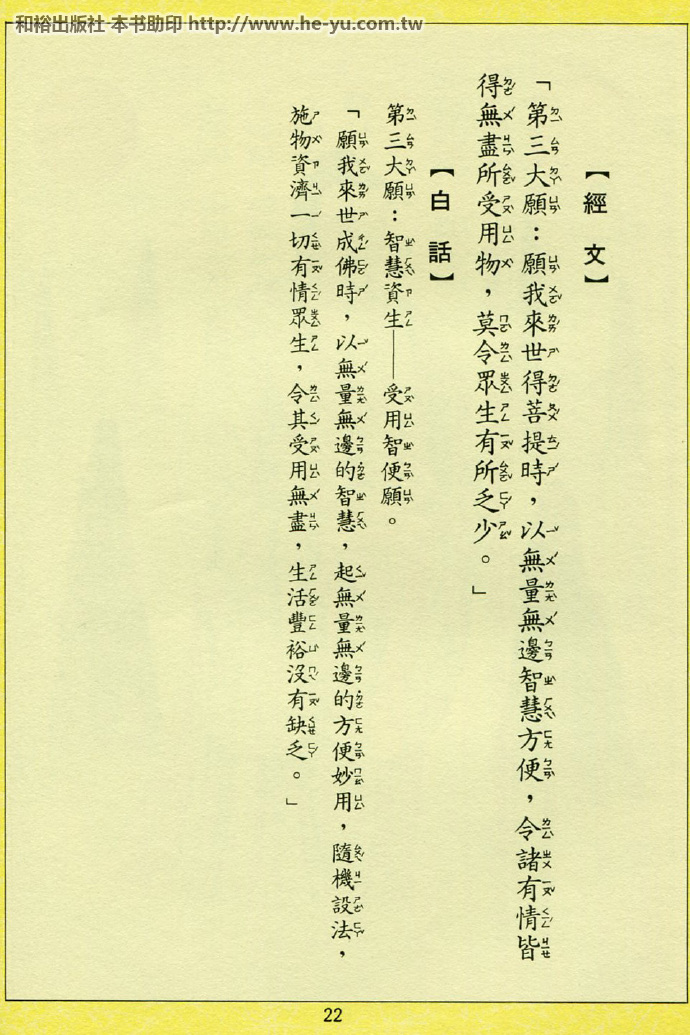 和裕出版社 本书助印 http://www.he-yu.com.tw
【經文】
「第三大願：願我來世得菩提時，以無量無邊智慧方便，令諸有情皆
得無盡所受用物，莫令眾生有所乏少。」
【白話】
第三大願：智慧資生——受用智便願。
「願我來世成佛時，以無量無邊的智慧，起無量無邊的方便妙用，隨機設法，
施物資濟一切有情眾生，令其受用無盡，生活豐裕沒有缺乏。」
22